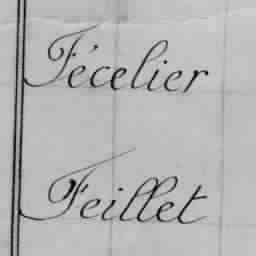 Fécelier
Feillet